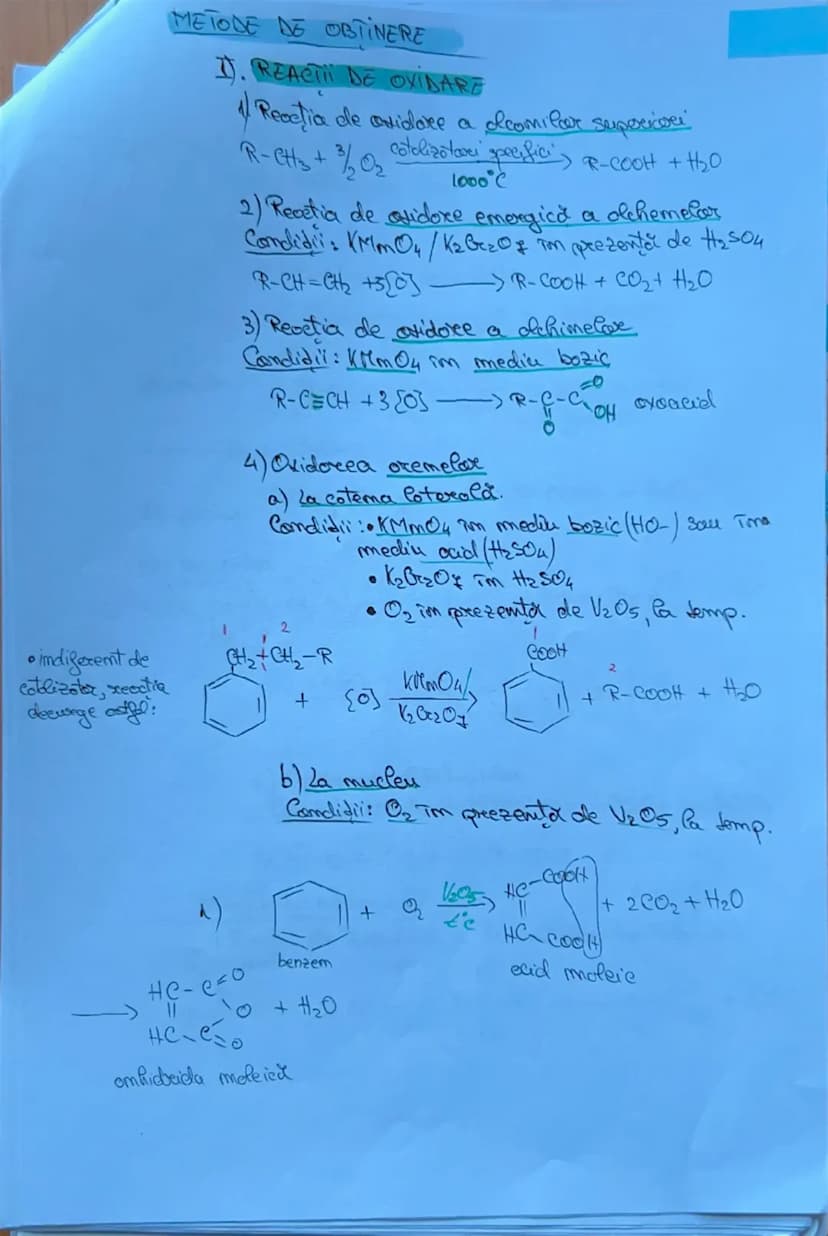 METODE DE OBȚINERE
I). REACȚII DE OXIDARE
1) Reacția de oxidare a alcanilor superiori
R-CH3 + 3/2 O2 catalizatori specifici → R-COOH + H2O
1000°C
2) Reacția de oxidare energică a alchenelor
Condiții: KMnO4 / K2Cr2O7 în prezență de H2SO4
R-CH=CH2 +5[O] → R-COOH + CO2 + H2O
3) Reacția de oxidare a alchinelor
Condiții: KMnO4 în mediu bazic
R-C≡CH +3[O] → R-C-C=O OH oxoacid
O
4) Oxidarea arenelor
a) La catena laterală.
Condiții: • KMnO4 în mediu bazic (HO-) sau în
mediu acid (H2SO4)
• K2Cr2O7 în H2SO4
• O2 în prezență de V2O5, la temp.
1 2 1
• indiferent de
catalizator, reacția
decurge astfel:
CH2-CH2-R COOH
+ [O] KMnO4/ K2Cr2O7 → + 2 R-COOH + H2O
b) La nucleu
Condiții: O2 în prezență de V2O5, la temp.
1) + O2 V2O5 t°C → HC-COOH + 2CO2 + H2O
HC-COOH
benzen
acid maleic
→ HC-C=O
O + H2O
HC-C=O
anhidrida maleică